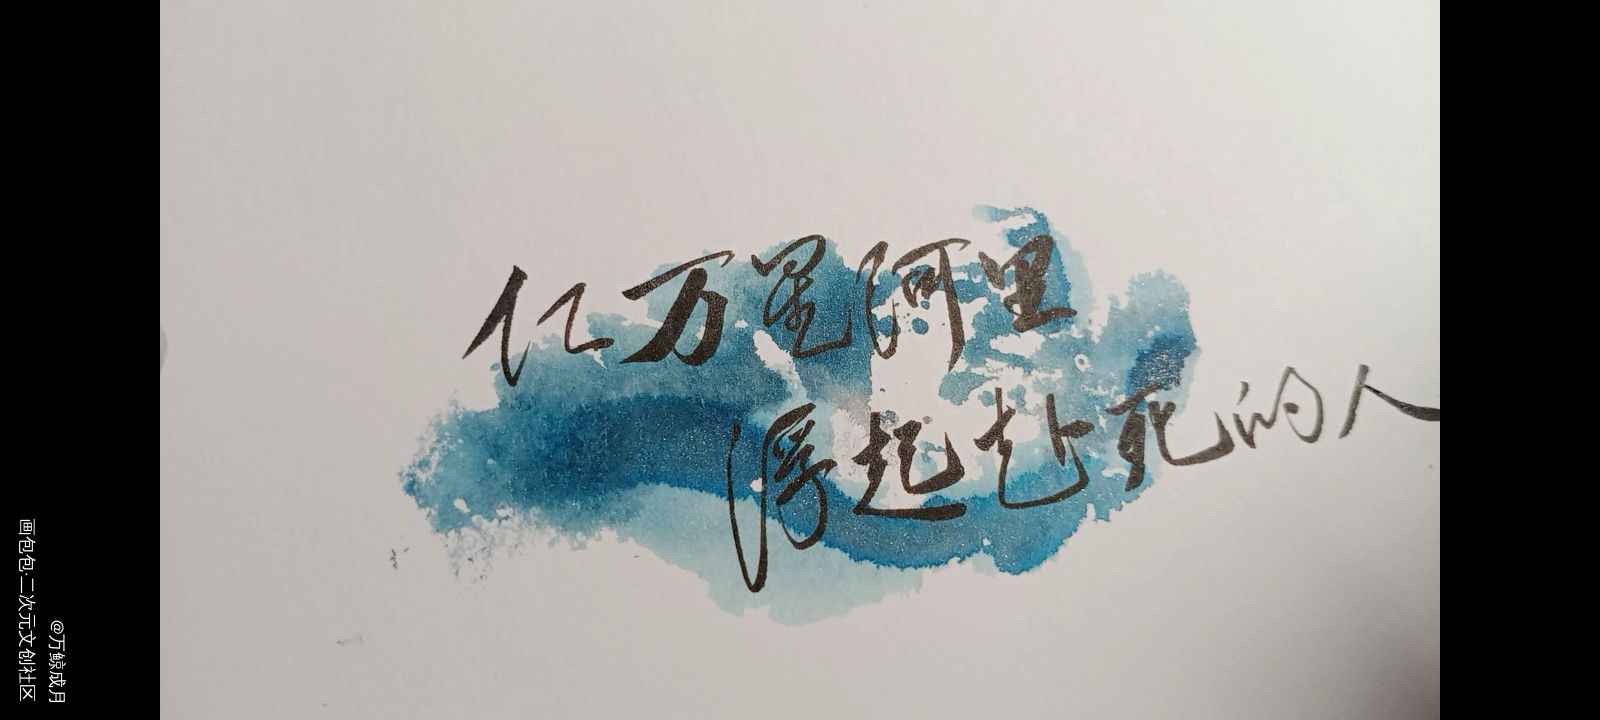 亿万星河里
浮起赴死的人
@万鲸成月
画包包·二次元文创社区